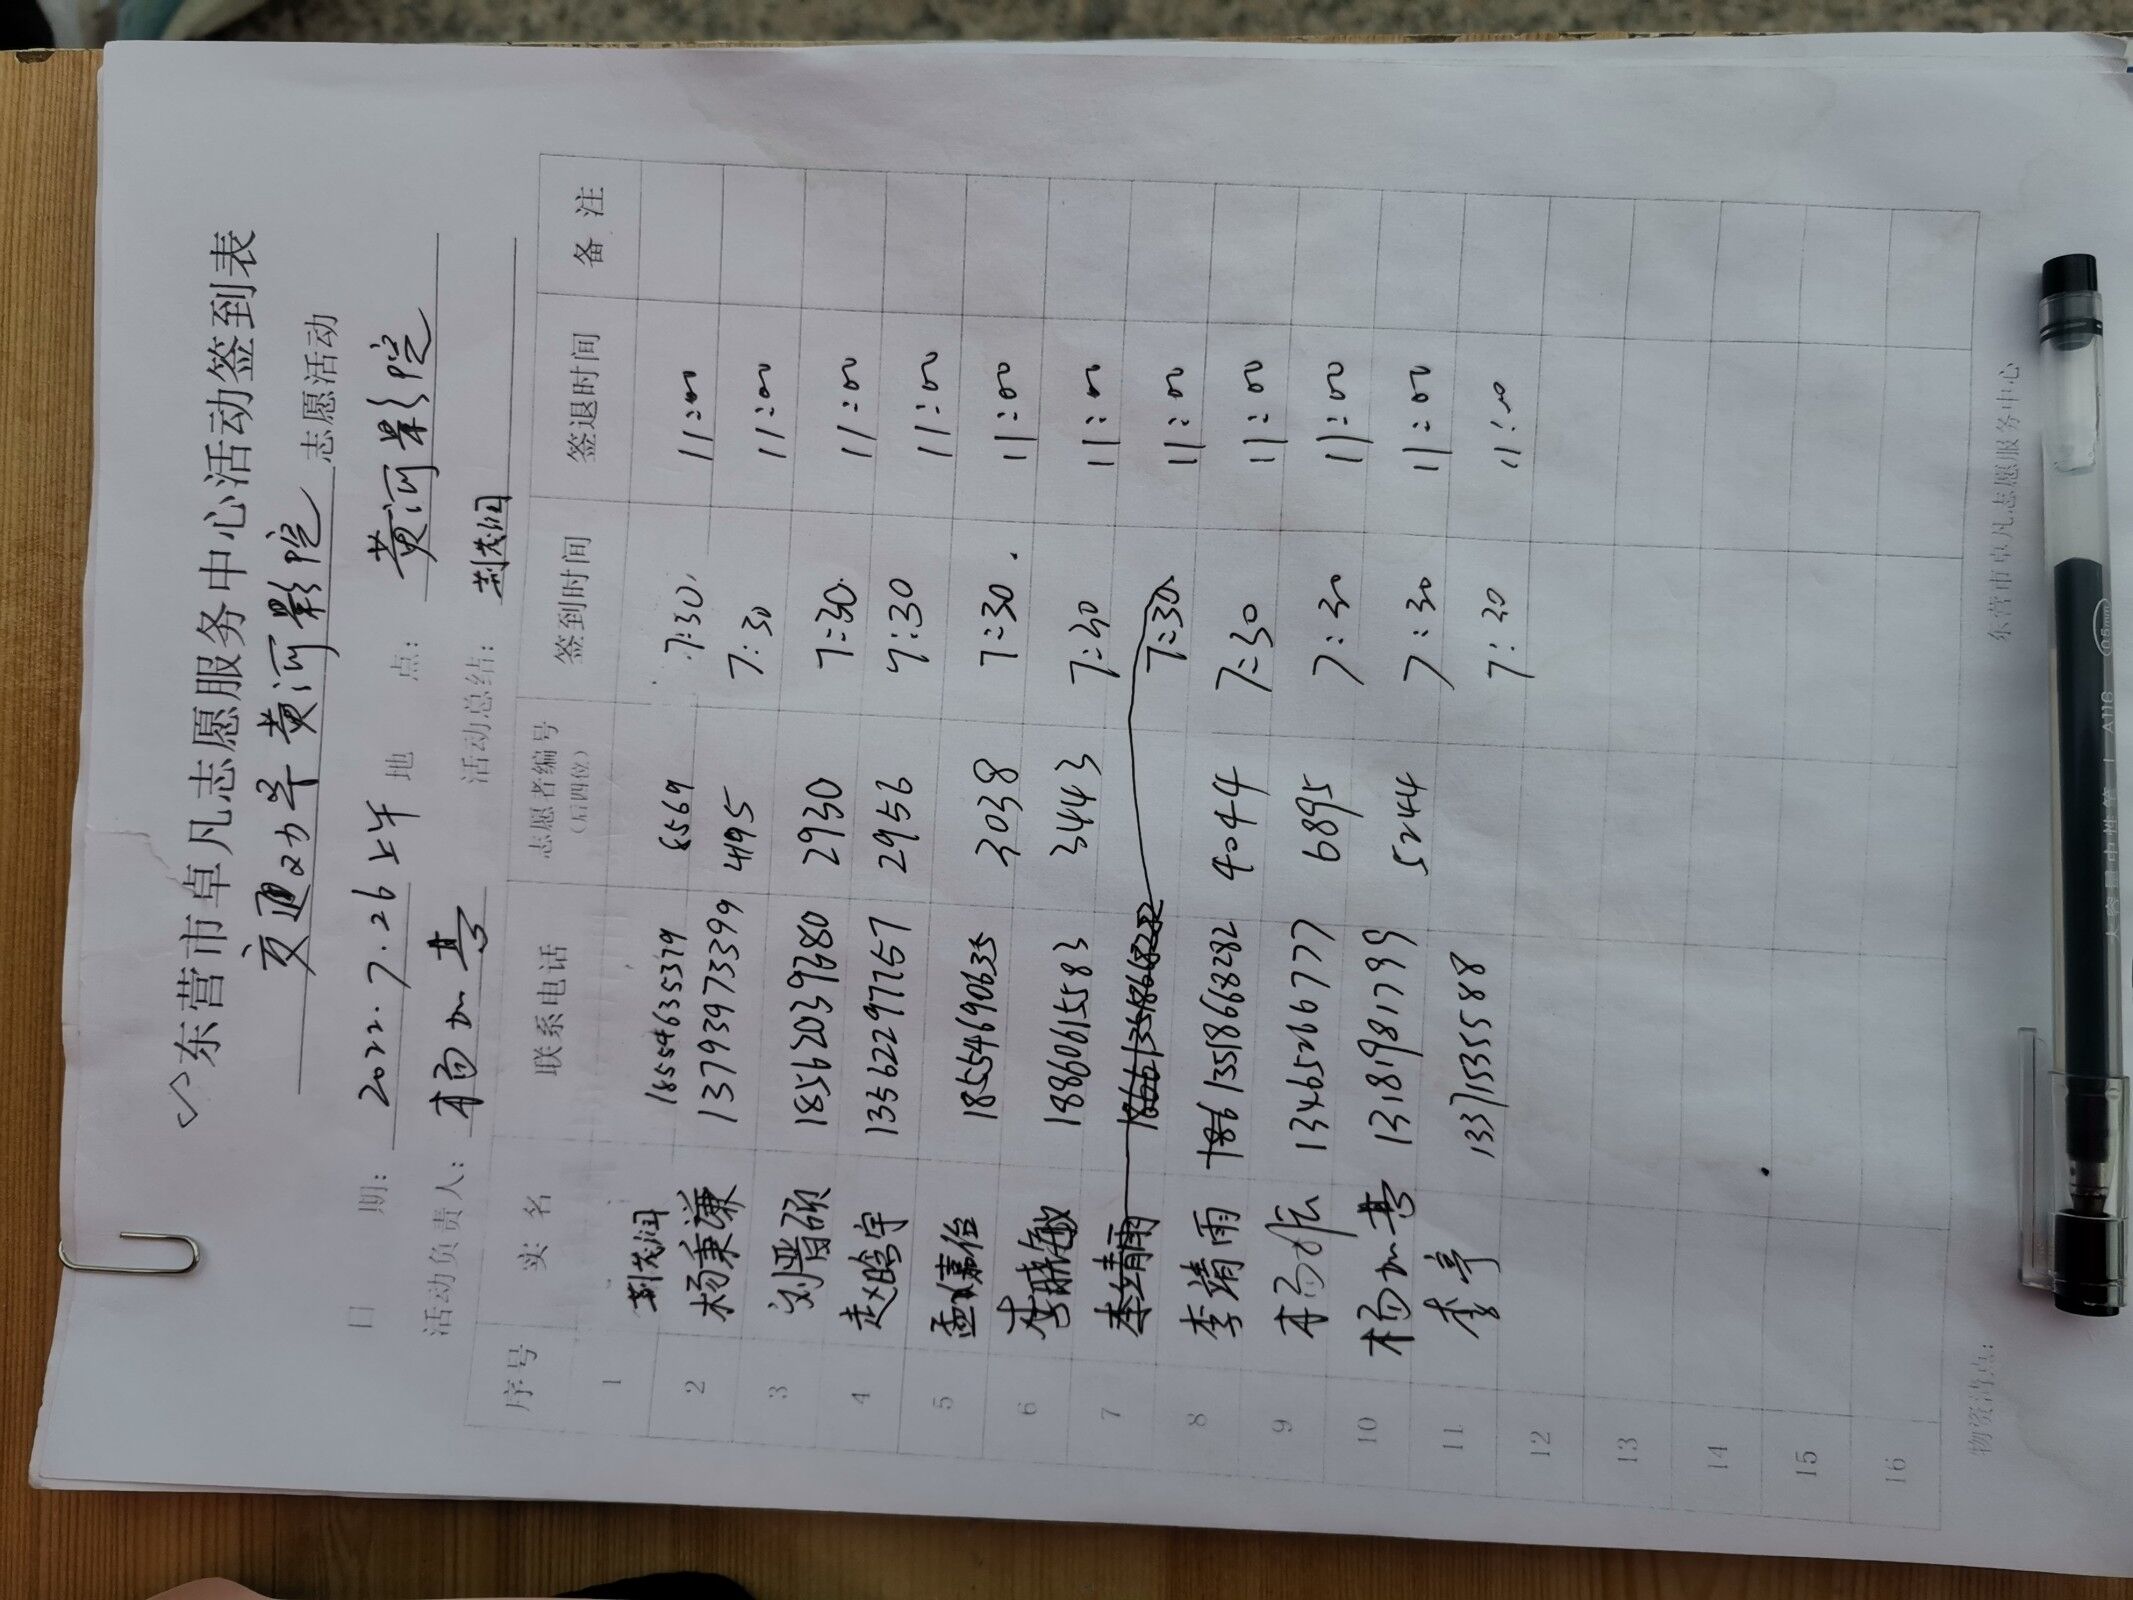 东营市卓凡志愿服务中心活动签到表
交通劝导黄河影院 志愿活动
日 期: 2022.7.26上午 地 点: 黄河影院
活动负责人: 杨如营 活动总结: 荆茂润
序号 实 名 联系电话 志愿者编号(后四位) 签到时间 签退时间 备 注
1 荆茂润 18554635379 8569 7:30 11:00
2 杨秉谦 13793973399 4195 7:30 11:00
3 刘晋硕 18562039680 2930 7:30 11:00
4 赵晗宇 13562297757 2956 7:30 11:00
5 孟嘉 18554690635 3038 7:30 11:00
6 李晓敏 18860615583 3443 7:30 11:00
7 李靖雨 7:30 11:00
8 李靖雨 13518668282 4044 7:30 11:00
9 杨振 13465266777 6895 7:30 11:00
10 杨如营 13181981799 5244 7:30 11:00
11 李亭 13371535588 7:30 11:00
12
13
14
15
16
物资清点: 东营市卓凡志愿服务中心
A116
0.5mm